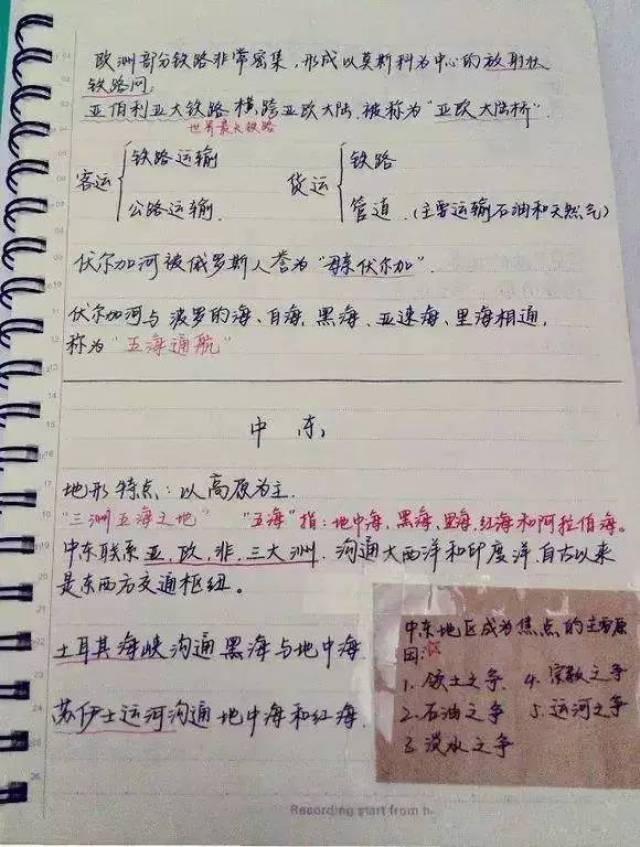 欧洲部分铁路非常密集，形成以莫斯科为中心的放射状
铁路网
亚伯利亚大铁路横跨亚欧大陆，被称为"亚欧大陆桥"．
世界最长铁路
客运 铁路运输 货运 铁路
公路运输． 管道．(主要运输石油和天然气)
伏尔加河被俄罗斯人誉为"母亲伏尔加"．
伏尔加河与波罗的海、白海、黑海、亚速海、里海相通，
称为"五海通航"
中东，
地形特点：以高原为主．
"三洲五海之地" "五海"指：地中海、黑海、里海、红海和阿拉伯海。
中东联系亚，欧，非，三大洲．沟通大西洋和印度洋．自古以来
是东西方交通枢纽。
土耳其海峡沟通黑海与地中海
苏伊士运河沟通地中海和红海．
中东地区成为焦点的主要原
因：
1．领土之争． 4．宗教之争
2．石油之争 5．运河之争
3．淡水之争
Recording start from h